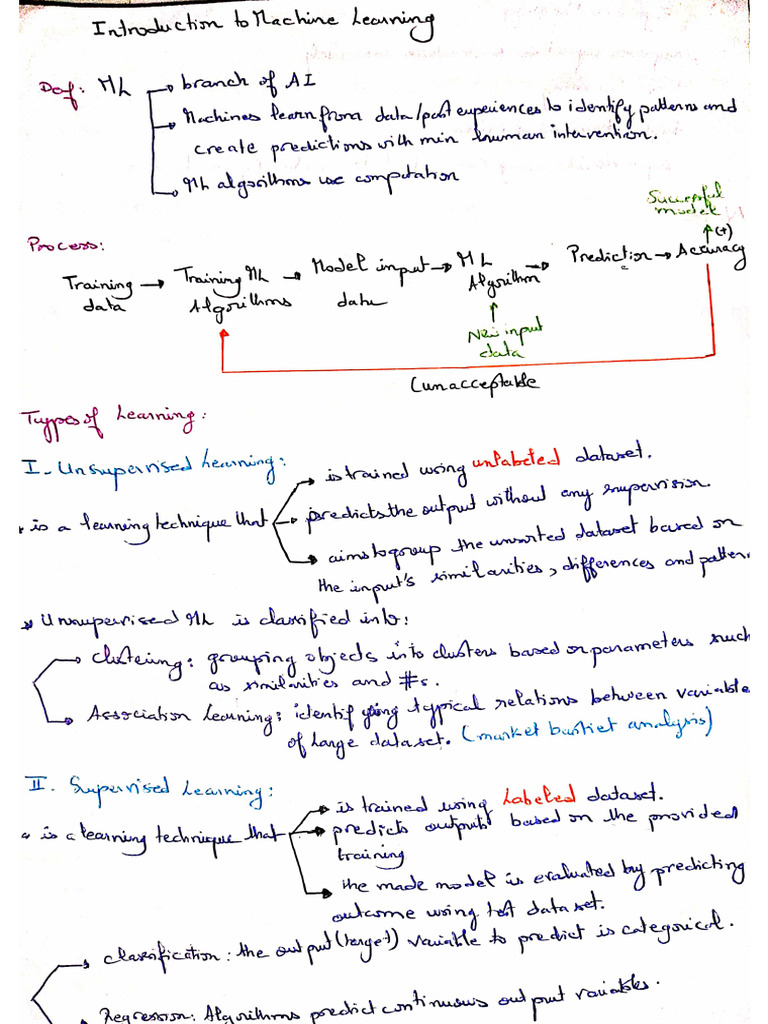 Introduction to Machine Learning
Def: ML
branch of AI
Machines learn from data/past experiences to identify patterns and
create predictions with min human intervention.
ML algorithms use computation
Successful
model
(+)
Process:
Training data → Training ML Algorithms → Model input data → ML Algorithm → Prediction → Accuracy
New input
data
(unacceptable
Types of Learning:
I - Unsupervised Learning:
is trained using unlabeled dataset.
* is a learning technique that
predicts the output without any supervision.
aims to group the unsorted dataset based on
the input's similarities, differences and patter
* Unsupervised ML is classified into:
Clustering: grouping objects into clusters based on parameters such
as similarities and #s.
Association Learning: identifying typical relations between variable
of large dataset. (market basket analysis)
II. Supervised Learning:
is trained using Labeled dataset.
* is a learning technique that
predicts outputs based on the provided
training
the made model is evaluated by predicting
outcome using test data set.
Classification: the output (target) variable to predict is categorical.
Regression: Algorithms predict continuous output variables.